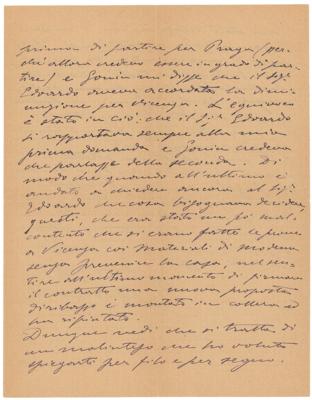 prima di partire per Praga (per-
chè allora credevo essere in grado di par-
tire) e Sonzin mi disse che il Sigr
Edoardo aveva accordata la dimi-
nuzione per Vicenza. L'equivoco
è stato in ciò che il Sigr Edoardo
si rapportava sempre alla mia
prima domanda e credeva
che parlasse della seconda. Di
modo che quando all'ultimo è
andato a chiedere ancora al Sigr
Edoardo che cosa bisognava decidere,
questi, che era stato un po' mal-
contento che si erano fatte le prove
a Vicenza coi materiali di Modena
senza prevenire la casa, nel sen-
tire all'ultimo momento di firmare
il contratto una nuova proposta
di ribasso è montato in collera ed
ha rifiutato.
Dunque vedi che si tratta di
un malinteso che ho voluto
spiegarti per filo e per segno.